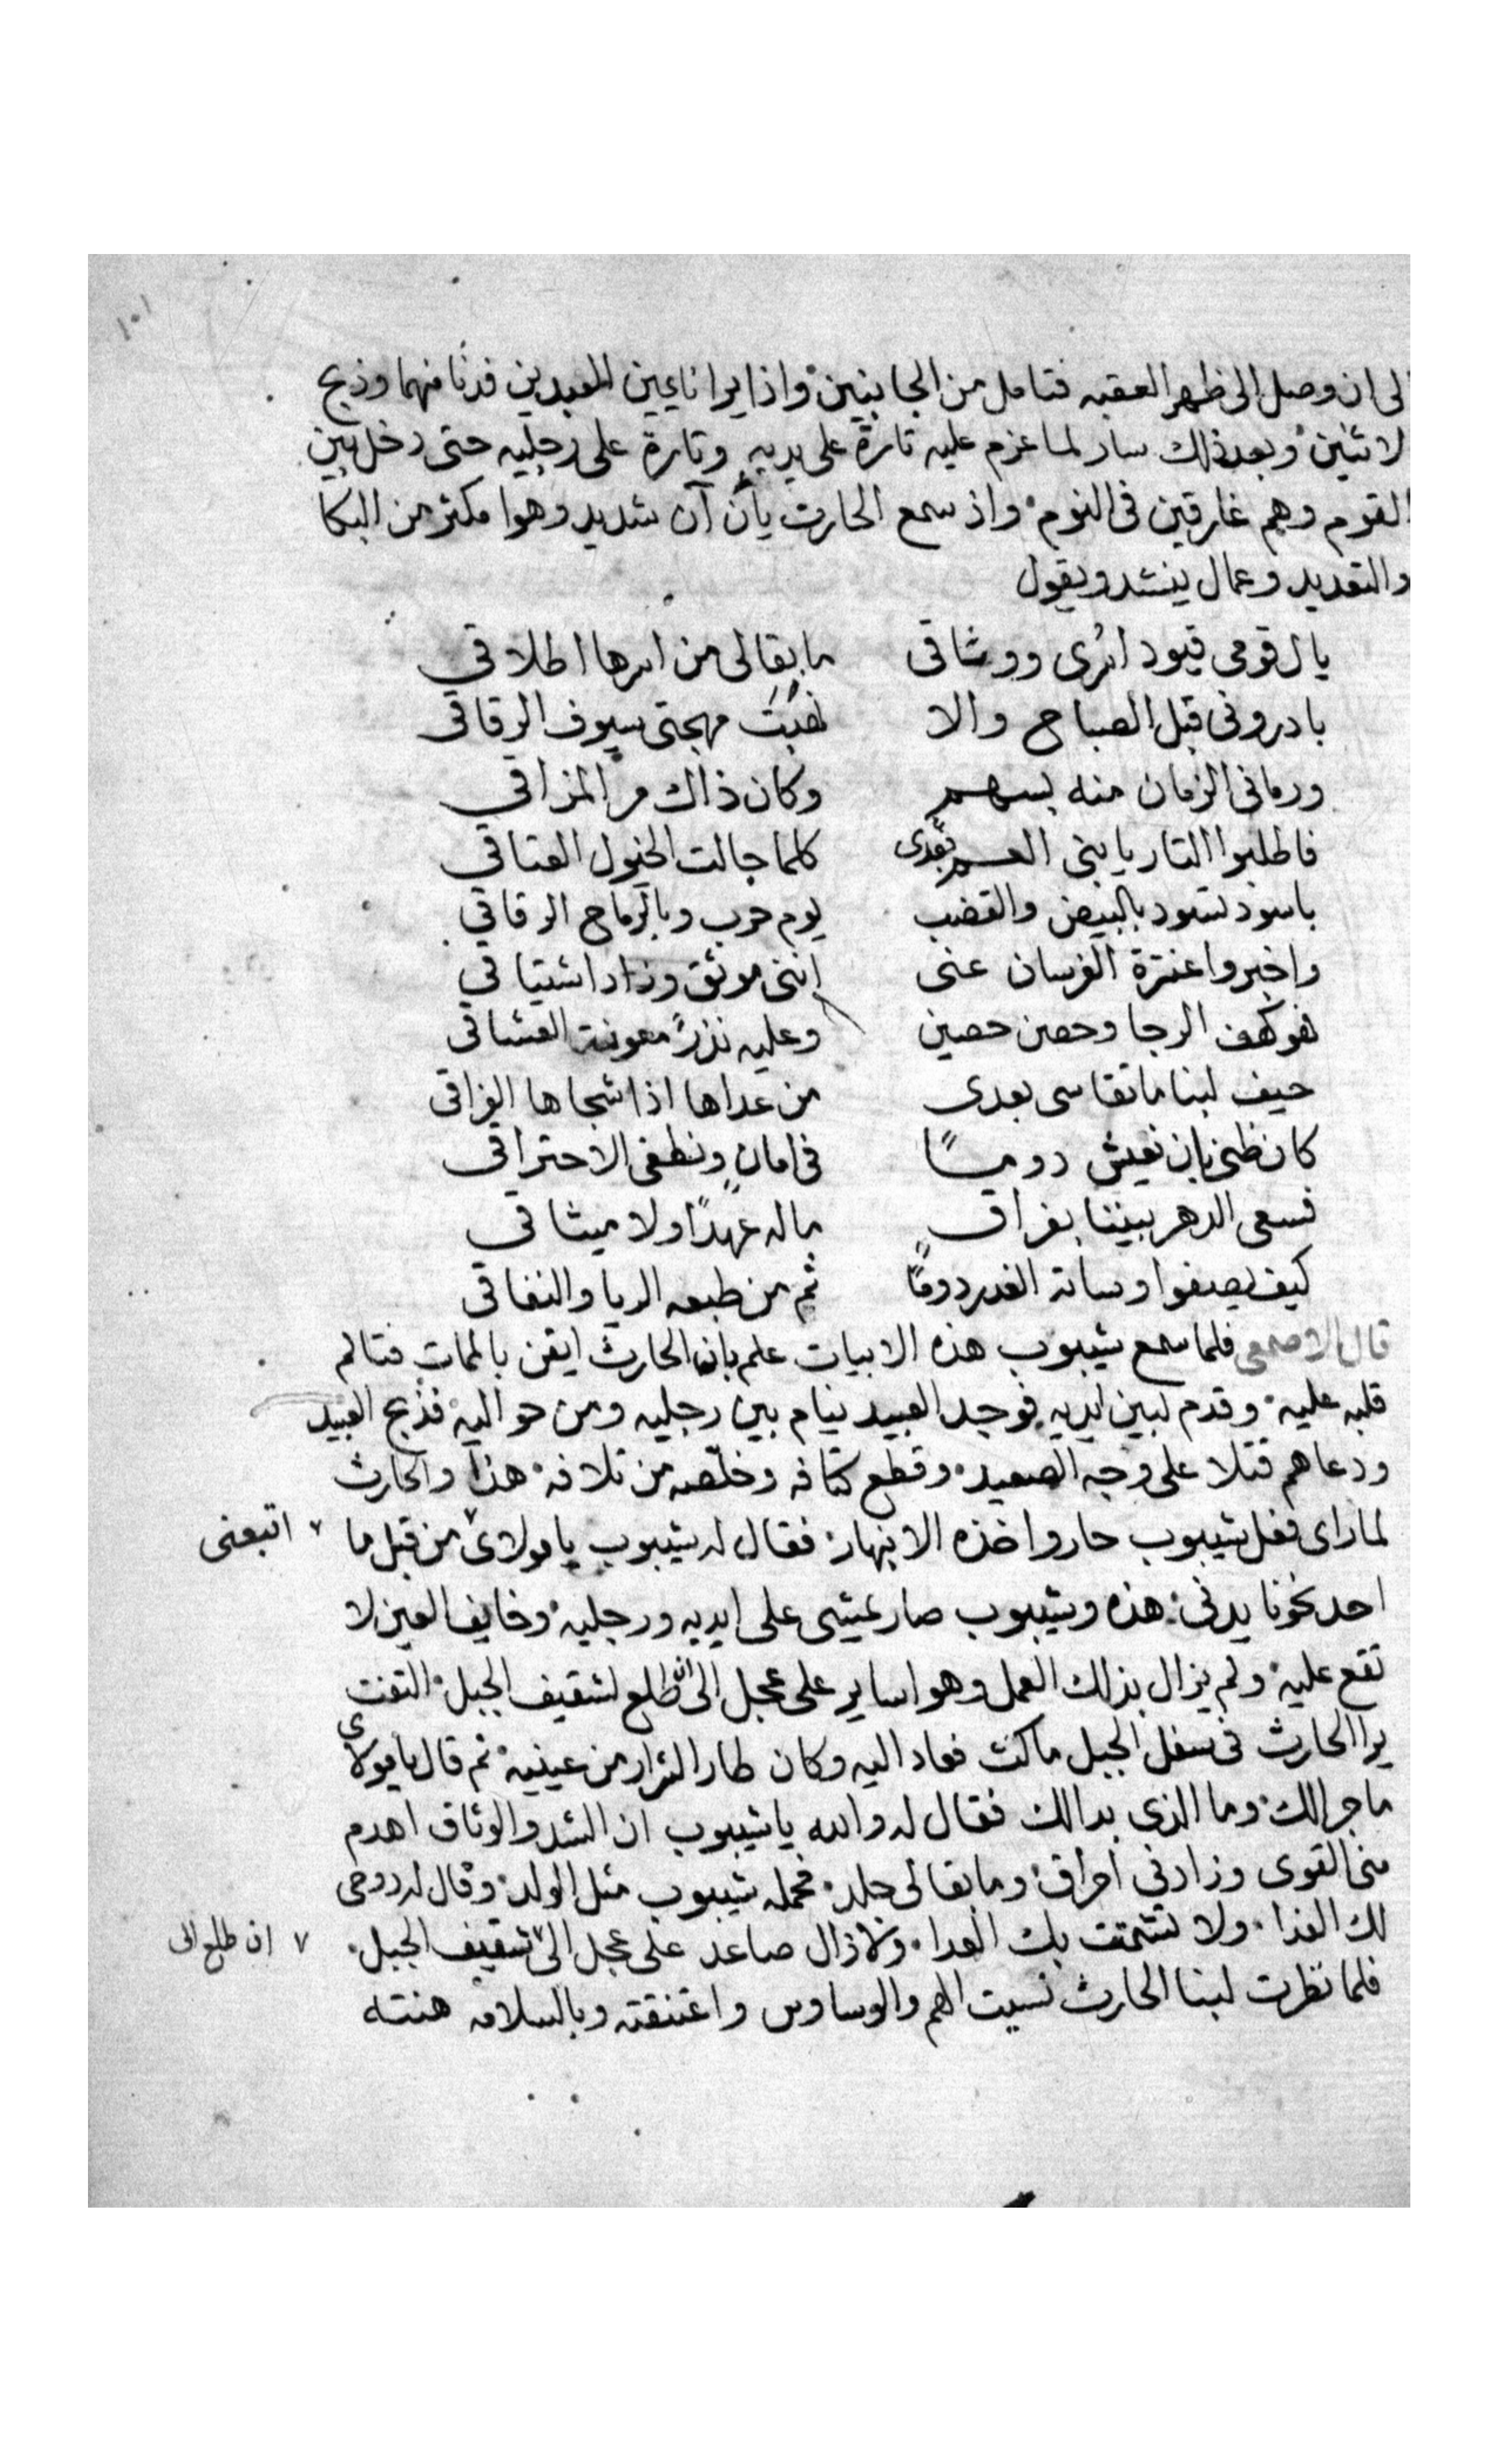 ١٠١
الى ان وصل الى ظهر العقبه فتامل من الجانبين واذا يرا نايمين العبدين فدنا منهما وذبح
لاثنين وبعد ذلك سار لما عزم عليه تارة على يديه وتارة على رجليه حتى دخل بين
القوم وهم غارقين فى النوم واذ سمع الحارث يأن آن شديد وهوا مكثر من البكا
والتعديد وعمال ينشد ويقول
يال قومى قيود اسرى ووثاقى ما بقا لى من اسرها اطلاقي
بادرونى قبل الصباح والا نهبت مهجتى سيوف الرقاقى
ورمانى الزمان منه بسهم وكان ذاك مر المذاقي
فاطلبوا التار يا بنى العم بعدى كلما جالت الخيول العتاقي
باسود تسود بالبيض والقضب يوم حرب وبالرماح الرقاقي
واخبروا عنترة الفرسان عنى اننى موثق وزاد اشتياقي
فهو كهف الرجا وحصن حصين وعليه نذرً معونت العشاقي
حيف لبنا ما تقاسى بعدى من عداها اذا شجاها الفراقى
كان ظنى بان نعيش دومًا فى امانٍ ونطفى الاحتراقى
فسعى الدهر بيننا بفراقٍ ماله عهدًا ولا ميثاقي
كيف يصفوا وساتة الغدر دومًا ثم من طبعه الريا والنفاقي
قال الاصمعى فلما سمع شيبوب هذه الابيات علم بان الحارث ايقن بالممات فتالم
قلبه عليه وقدم لبين ايديه فوجد العبيد نيام بين رجليه ومن حواليه فذبح العبيد
ودعاهم قتلا على وجه الصعيد وقطع كتافه وخلّصه من تلافه هذا والحارث
لماراى فعل شيبوب حار واخذه الانبهار فقال له شيبوب يا مولاى ٧ من قبل ما ٧ اتبعنى
احد نحونا يدنى هذه وشيبوب صار يمشى على ايديه ورجليه وخايف العين لا
تقع عليه ولم يزال بذلك العمل وهوا ساير على عجل الى ان طلع لشقيف الجبل التفت
يرا الحارث فى سفل الجبل ماكث فعاد اليه وكان طار الشرار من عينيه ثم قال يا مولاى
ماجرالك وما الذى بدالك فقال له والله يا شيبوب ان الشد والوثاق اهدم
منى القوى وزادني احراق وما بقا لى جلد فحمله شيبوب مثل الولد وقال له روحى
لك الفدا ولا تشمتت بك العدا ولازال صاعد على عجل الى ٧ شقيف الجبل ٧ ان طلع الى
فلما نظرت لبنا الحارث نسيت الهم والوساوس واعتنقته وبالسلامه هنته